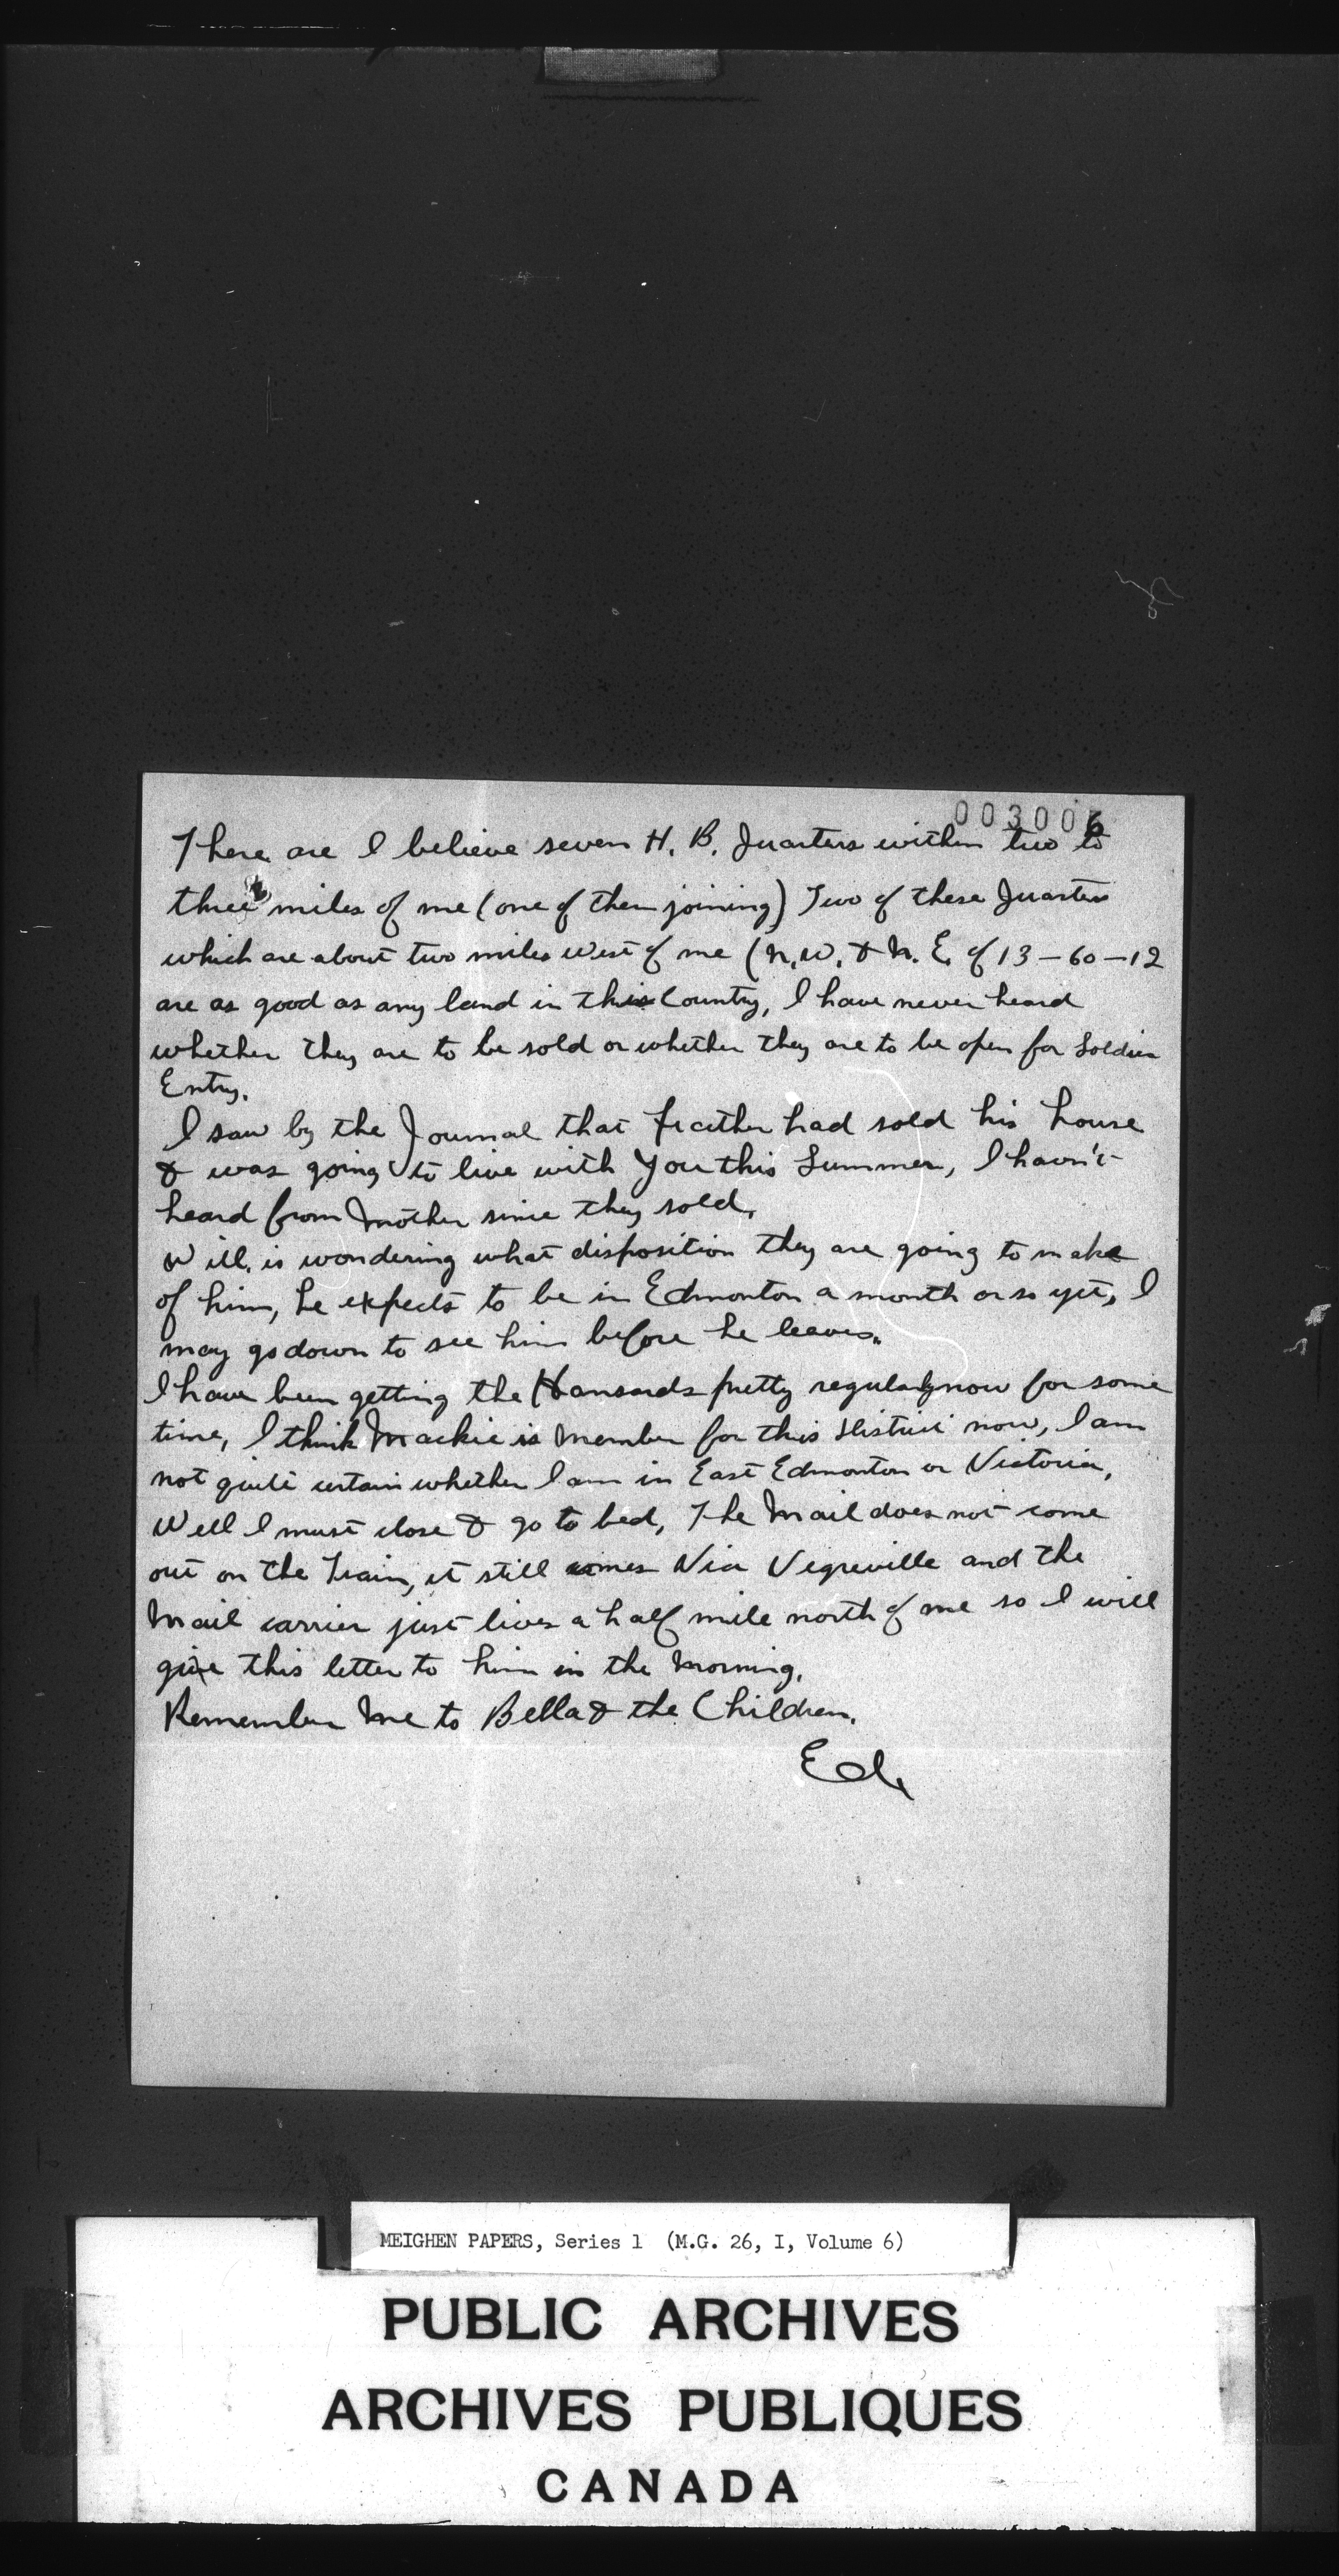 003006
There are I believe seven H. B. Quarters within two to
three miles of me (one of them joining) Two of these Quarters
which are about two miles West of me (N.W. & N. E. of 13-60-12
are as good as any land in this Country, I have never heard
whether they are to be sold or whether they are to be open for Soldier
Entry.
I saw by the Journal that Feather had sold his house
& was going to live with You this Summer, I havn't
heard from Mother since they sold.
Will. is wondering what disposition they are going to make
of him, he expects to be in Edmonton a month or so yet, I
may go down to see him before he leaves.
I have been getting the Hansards pretty regularly now for some
time, I think Mackie is Member for this District now, I am
not quite certain whether I am in East Edmonton or Victoria,
Well I must close & go to bed, The Mail does not come
out on the Train, it still comes Via Vegreville and the
Mail carrier just lives a half mile north of me so I will
give this letter to him in the Morning.
Remember Me to Bella & the Children.
Ed.
MEIGHEN PAPERS, Series 1 (M.G. 26, I, Volume 6)
PUBLIC ARCHIVES
ARCHIVES PUBLIQUES
CANADA